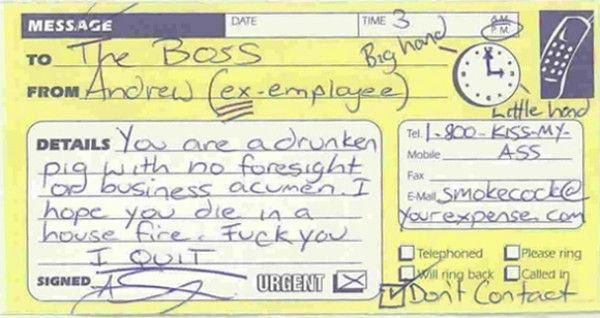 MESSAGE
DATE
TIME 3
A.M.
P.M.
TO The Boss
Big hand
FROM Andrew (ex-employee)
Little hand
DETAILS You are a drunken
pig with no foresight
or business acumen. I
hope you die in a
house fire. Fuck you
I QUIT
SIGNED
URGENT
Tel. 1-800-KISS-MY-
Mobile ASS
Fax
E-Mail smokecock@
yourexpense.com
Telephoned
Please ring
Will ring back
Called in
Don't Contact